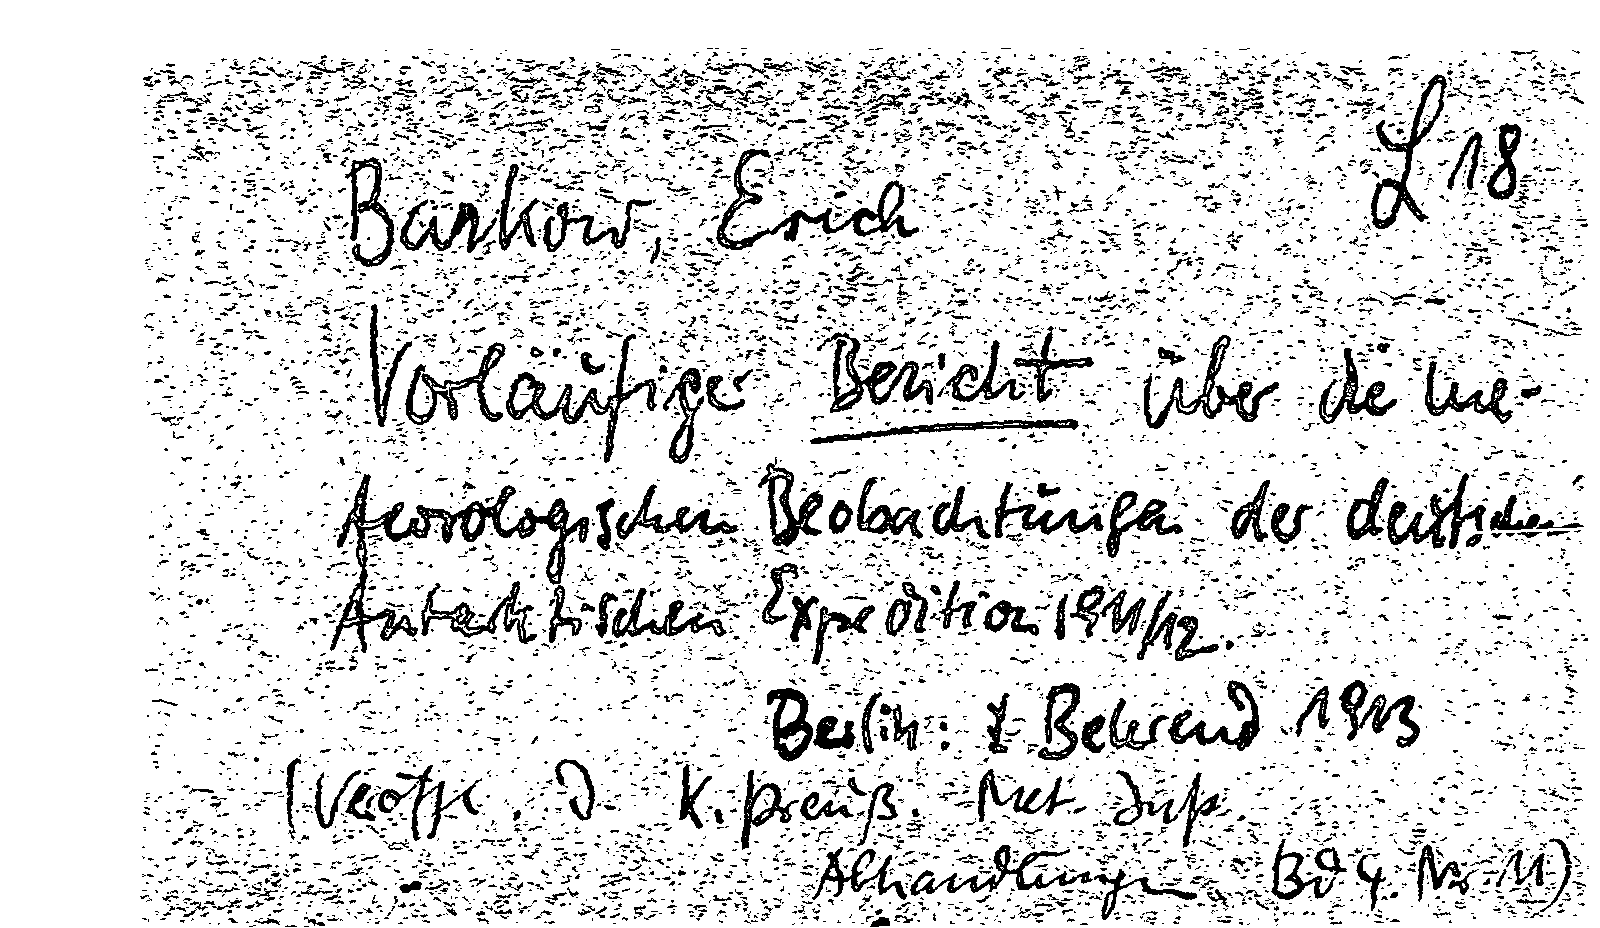 L 18
Barkow, Erich
Vorläufiger Bericht über die me-
teorologischen Beobachtungen der deutschen
Antarktischen Expedition 1911/12.
Berlin: Behrend 1913
(Veröff. d. K. Preuß. Met. Inst.
Abhandlungen Bd 4. Nr. 11)